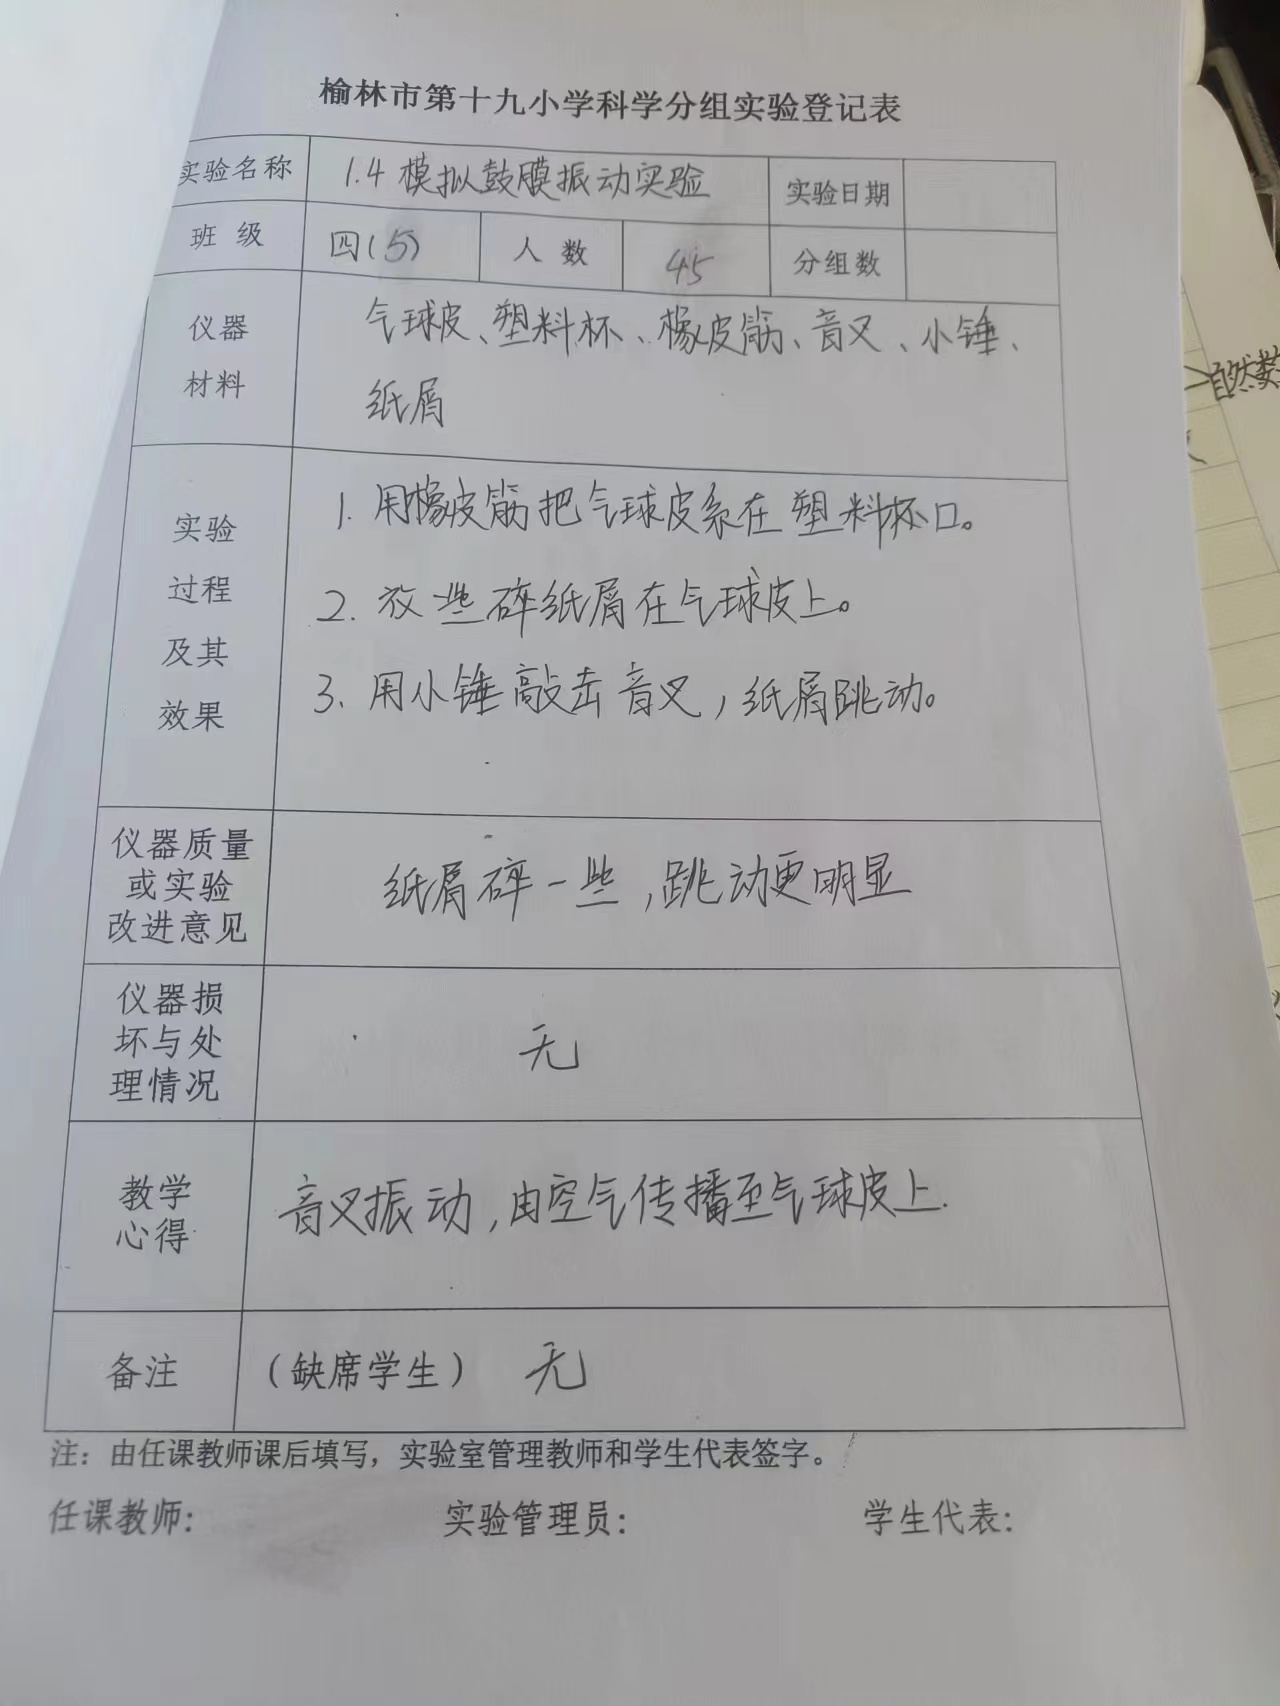 榆林市第十九小学科学分组实验登记表
实验名称 1.4 模拟鼓膜振动实验 实验日期
班 级 四(5) 人 数 45 分组数
仪器
材料
气球皮、塑料杯、橡皮筋、音叉、小锤、
纸屑
实验
过程
及其
效果
1. 用橡皮筋把气球皮系在塑料杯口。
2. 放些碎纸屑在气球皮上。
3. 用小锤敲击音叉，纸屑跳动。
仪器质量
或实验
改进意见
纸屑碎一些，跳动更明显
仪器损
坏与处
理情况
无
教学
心得
音叉振动，由空气传播至气球皮上.
备注 （缺席学生） 无
注：由任课教师课后填写，实验室管理教师和学生代表签字。
任课教师: 实验管理员: 学生代表:
自然数